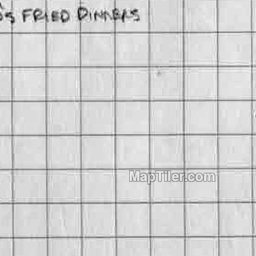 FRIED DINNERS
MapTiler.com